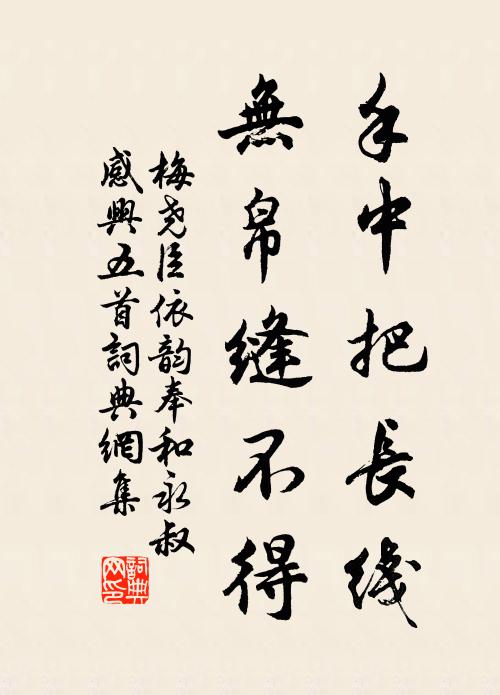 手中把長綫
無帛縫不得
梅尧臣依韵奉和永叔
感興五首詞典網集
詞典网印